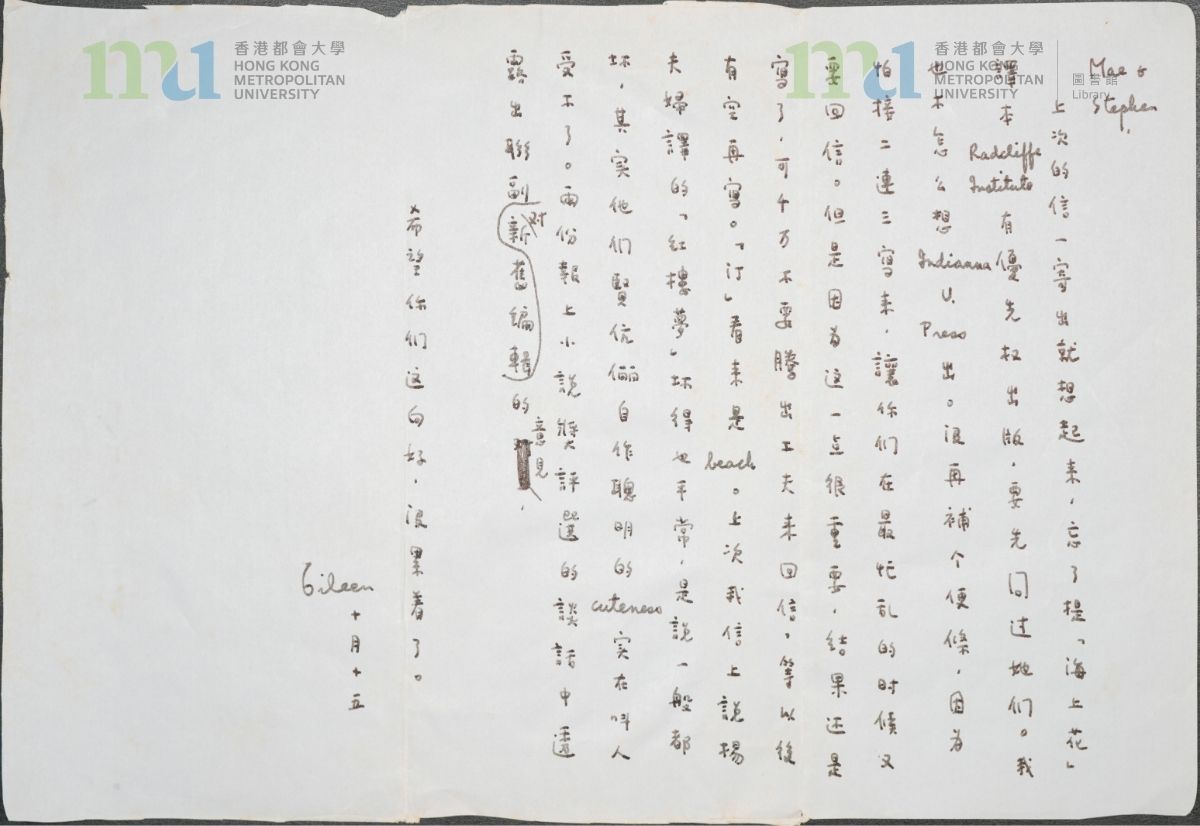 Mae &
Stephen,
上次的信一寄出就想起来,忘了提「海上花」
譯本 Radcliffe Institute 有優先权出版,要先问过她们。我
也不怎么想 Indianna U. Press 出。没再補个便條,因为
怕接二連三寫来,讓你们在最忙乱的时候又
要回信。但是因为这一点很重要,結果还是
寫了,可千万不要騰出工夫来回信。等以後
有空再寫。「汀」看来是 beach。上次我信上說楊
夫婦譯的「紅樓夢」坏得也平常,是說一般都
坏,其实他们賢伉儷自作聰明的 cuteness 实在叫人
受不了。兩份報上小說奬評選的談話中透
露出聯副对新舊編輯的意見,
希望你们这向好,没累着了。
Eileen
十月十五
香港都會大學
HONG KONG
METROPOLITAN
UNIVERSITY
香港都會大學
HONG KONG
METROPOLITAN
UNIVERSITY
圖書館
Library